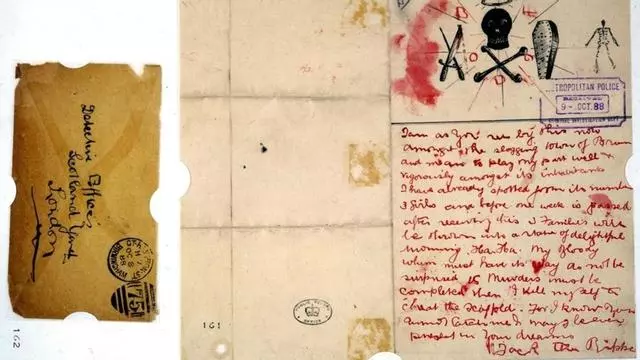 Detective Offices
Scotland Yard
London
OC 8
88
75
162
161
TROPOLITAN POLICE
RECEIVED
9-OCT.88
I am as you see by this note
amongst the slogging town of Brum
and mean to play my part well &
vigorously amongst its inhabitants
I have already spotted from its number
3 girls and before one week is passed
after receiving this 3 Families will
be thrown into a state of delightful
mourning. Ha. Ha. My Bloody
whim must have its way do not be
surprised 15 Murders must be
completed then I kill myself to
cheat the scaffold. For I know you
cannot catch me & I may be even
present in your dreams
Jack the Ripper